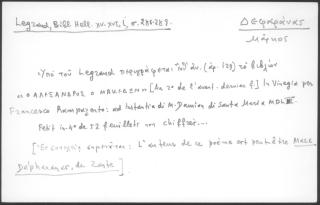 Legrand, Bibl. Hell. XV-XVI, I, σ. 288-289.
Δεφαράνας
Μάρκος
Ὑπὸ τοῦ Legrand περιγράφεται (ἀρ. 129) τὸ βιβλίον
Ο ΑΛΕΞΑΝΔΡΟΣ Ο ΜΑΚΕΔΩΝ [Au 2º de l'avant-dernier f.] In Vinegia per
Francesco Rampazetto: ad instantia di M. Damian di Santa Maria MDLIII
Petit in-4º de 52 feuillets non chiffrés...
L'auteur de ce poème est peut-être Marc
Depharanas, de Zante]